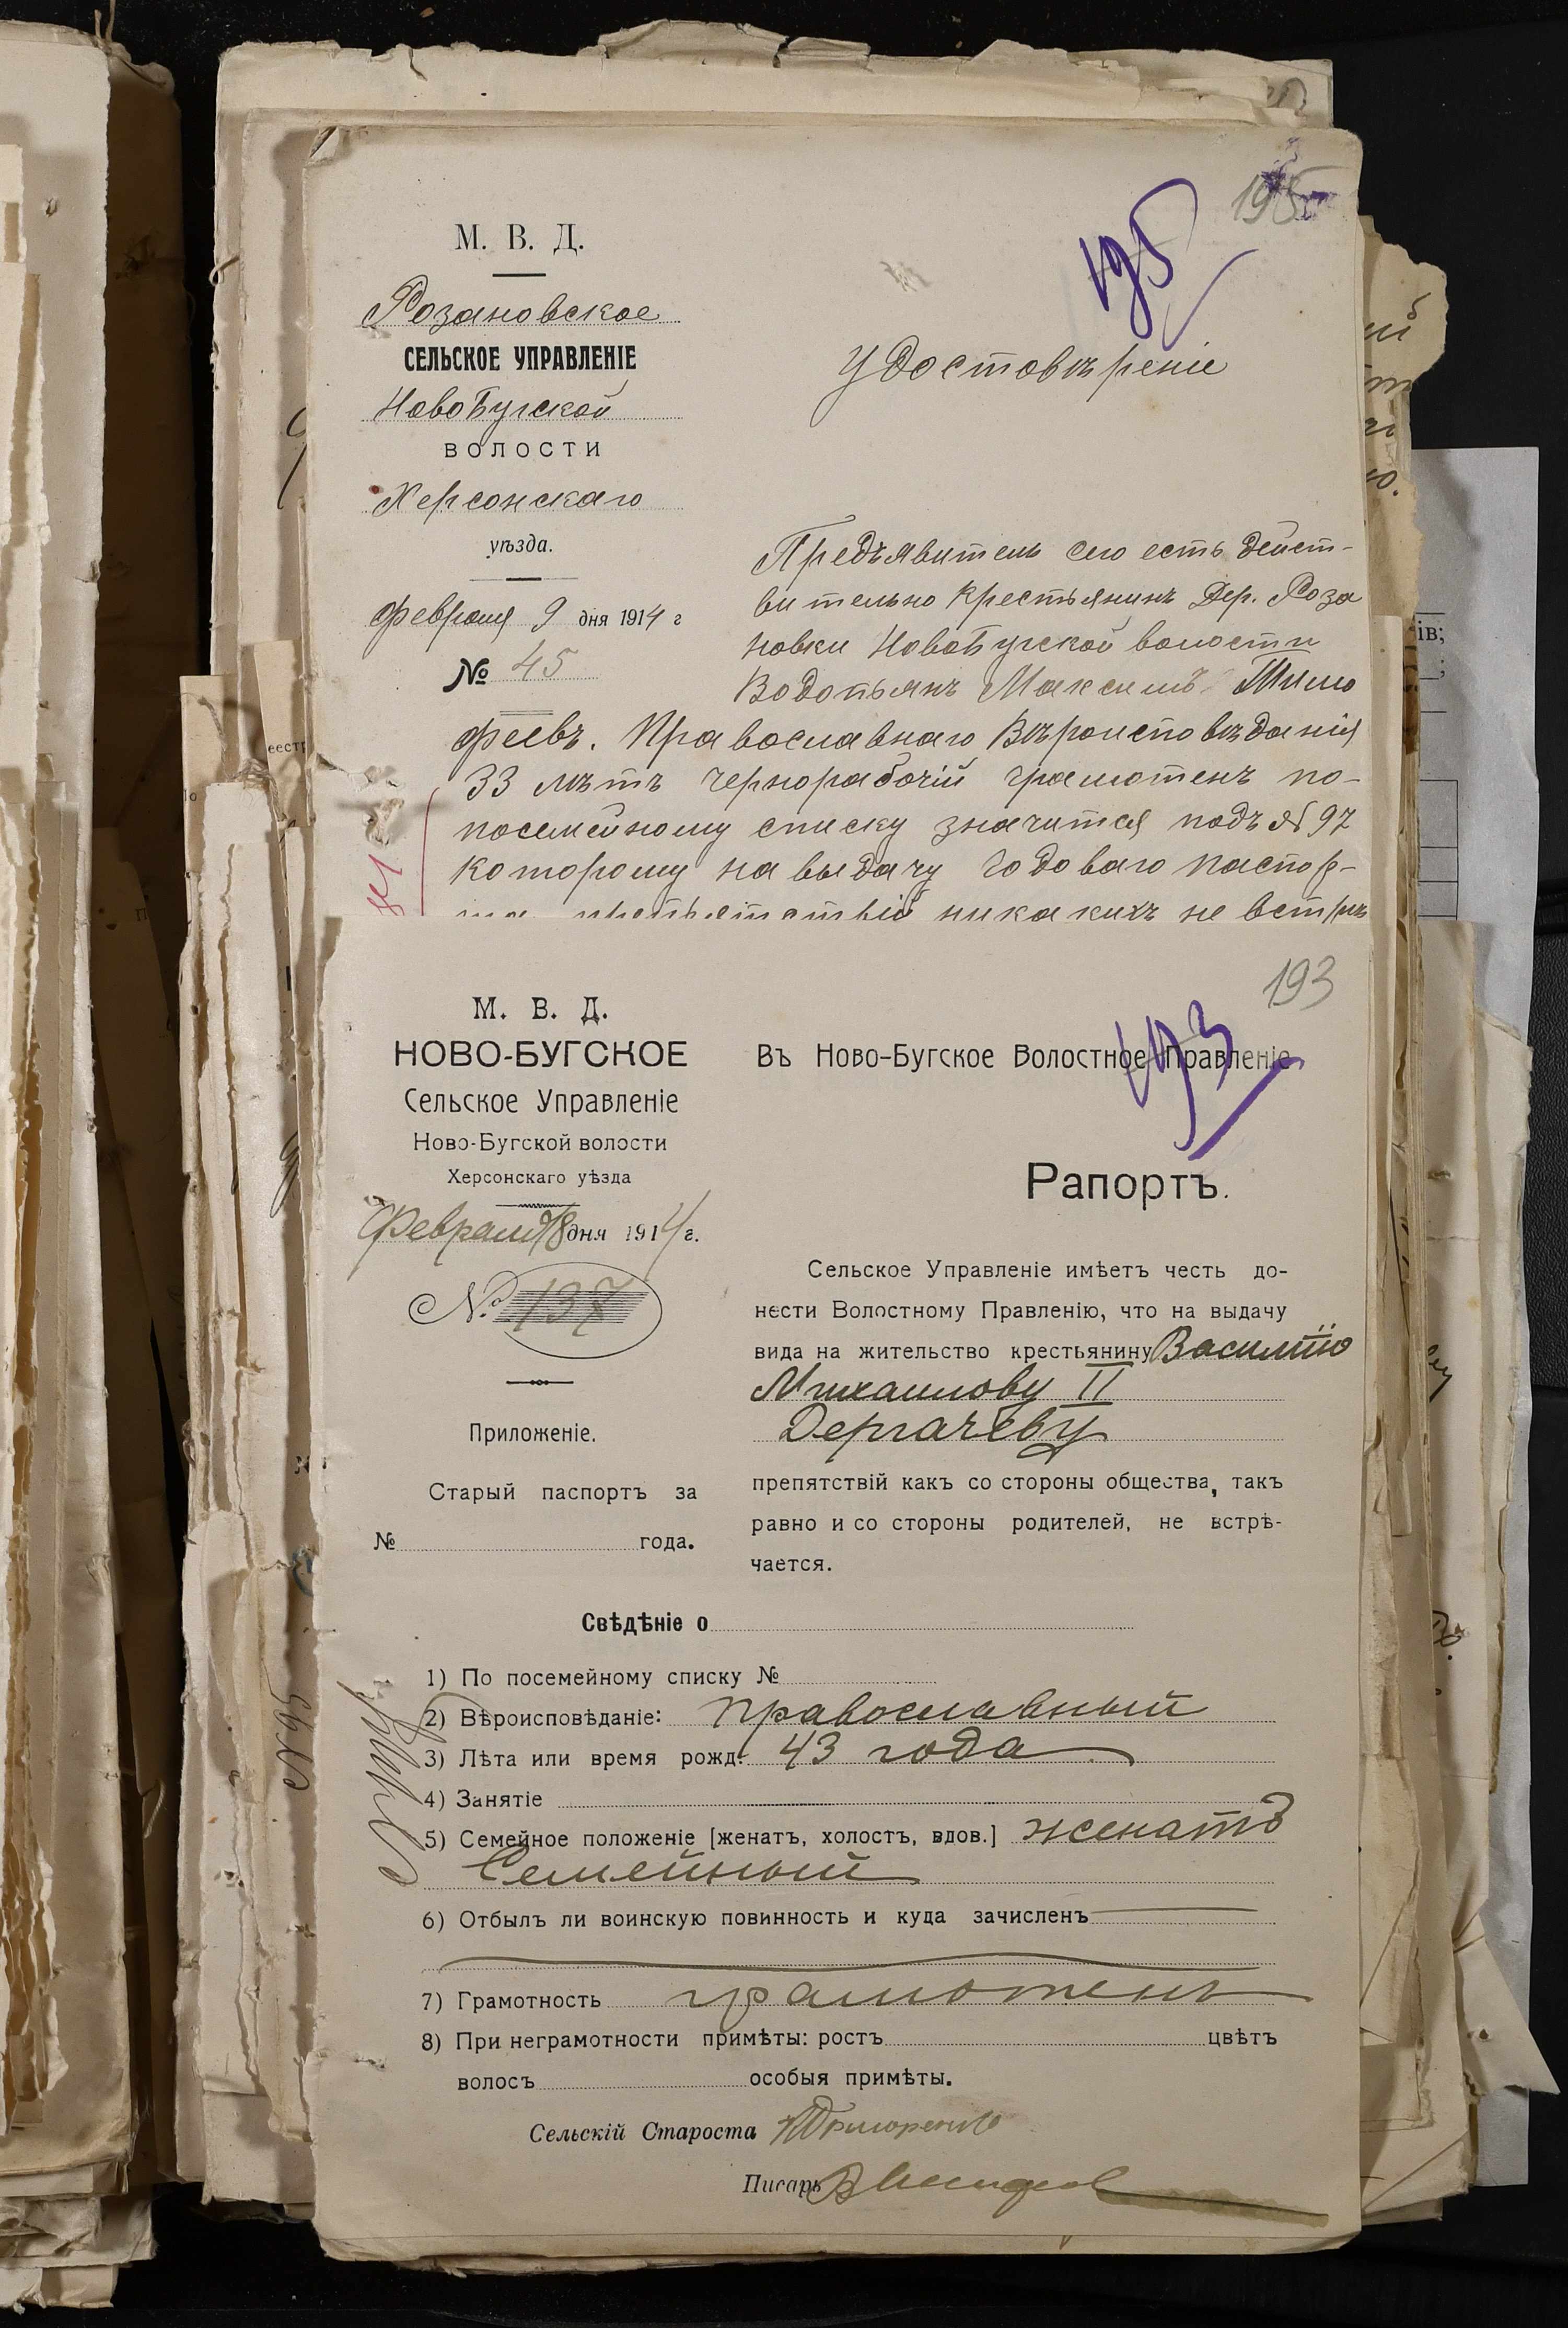 195
195
М. В. Д.
Розановское
СЕЛЬСКОЕ УПРАВЛЕНІЕ
НовоБугской
ВОЛОСТИ
Херсонскаго
уѣзда.
Февраля 9 дня 1914 г
№ 45
Удостовѣреніе
Предъявитель сего есть дѣйст-
вительно крестьянинъ Дер. Роза
новки НовоБугской волости
Водопьянъ Максимъ Тимо
феевъ. Православнаго Вѣроисповѣданія
33 лѣтъ чернорабочій грамотенъ по-
посемейному списку значится подъ № 97
которому на выдачу годоваго паспор-
та препятствій никакихъ не встрѣ
193
193
М. В. Д.
НОВО-БУГСКОЕ
Сельское Управленіе
Ново-Бугской волости
Херсонскаго уѣзда
Февраля 18 дня 1914 г.
№ 137
Приложеніе.
Старый паспортъ за
№ года.
Въ Ново-Бугское Волостное Правленіе
Рапортъ.
Сельское Управленіе имѣетъ честь до-
нести Волостному Правленію, что на выдачу
вида на жительство крестьянину Василію
Михаилову II
Дергачеву
препятствій какъ со стороны общества, такъ
равно и со стороны родителей, не встрѣ-
чается.
Свѣдѣніе о
1) По посемейному списку №
2) Вѣроисповѣданіе: православный
3) Лѣта или время рожд. 43 года
4) Занятіе
5) Семейное положеніе [женатъ, холостъ, вдов.] женатъ
Семейный
6) Отбылъ ли воинскую повинность и куда зачисленъ
7) Грамотность грамотенъ
8) При неграмотности примѣты: ростъ цвѣтъ
волосъ особыя примѣты.
Сельскій Староста
Писарь